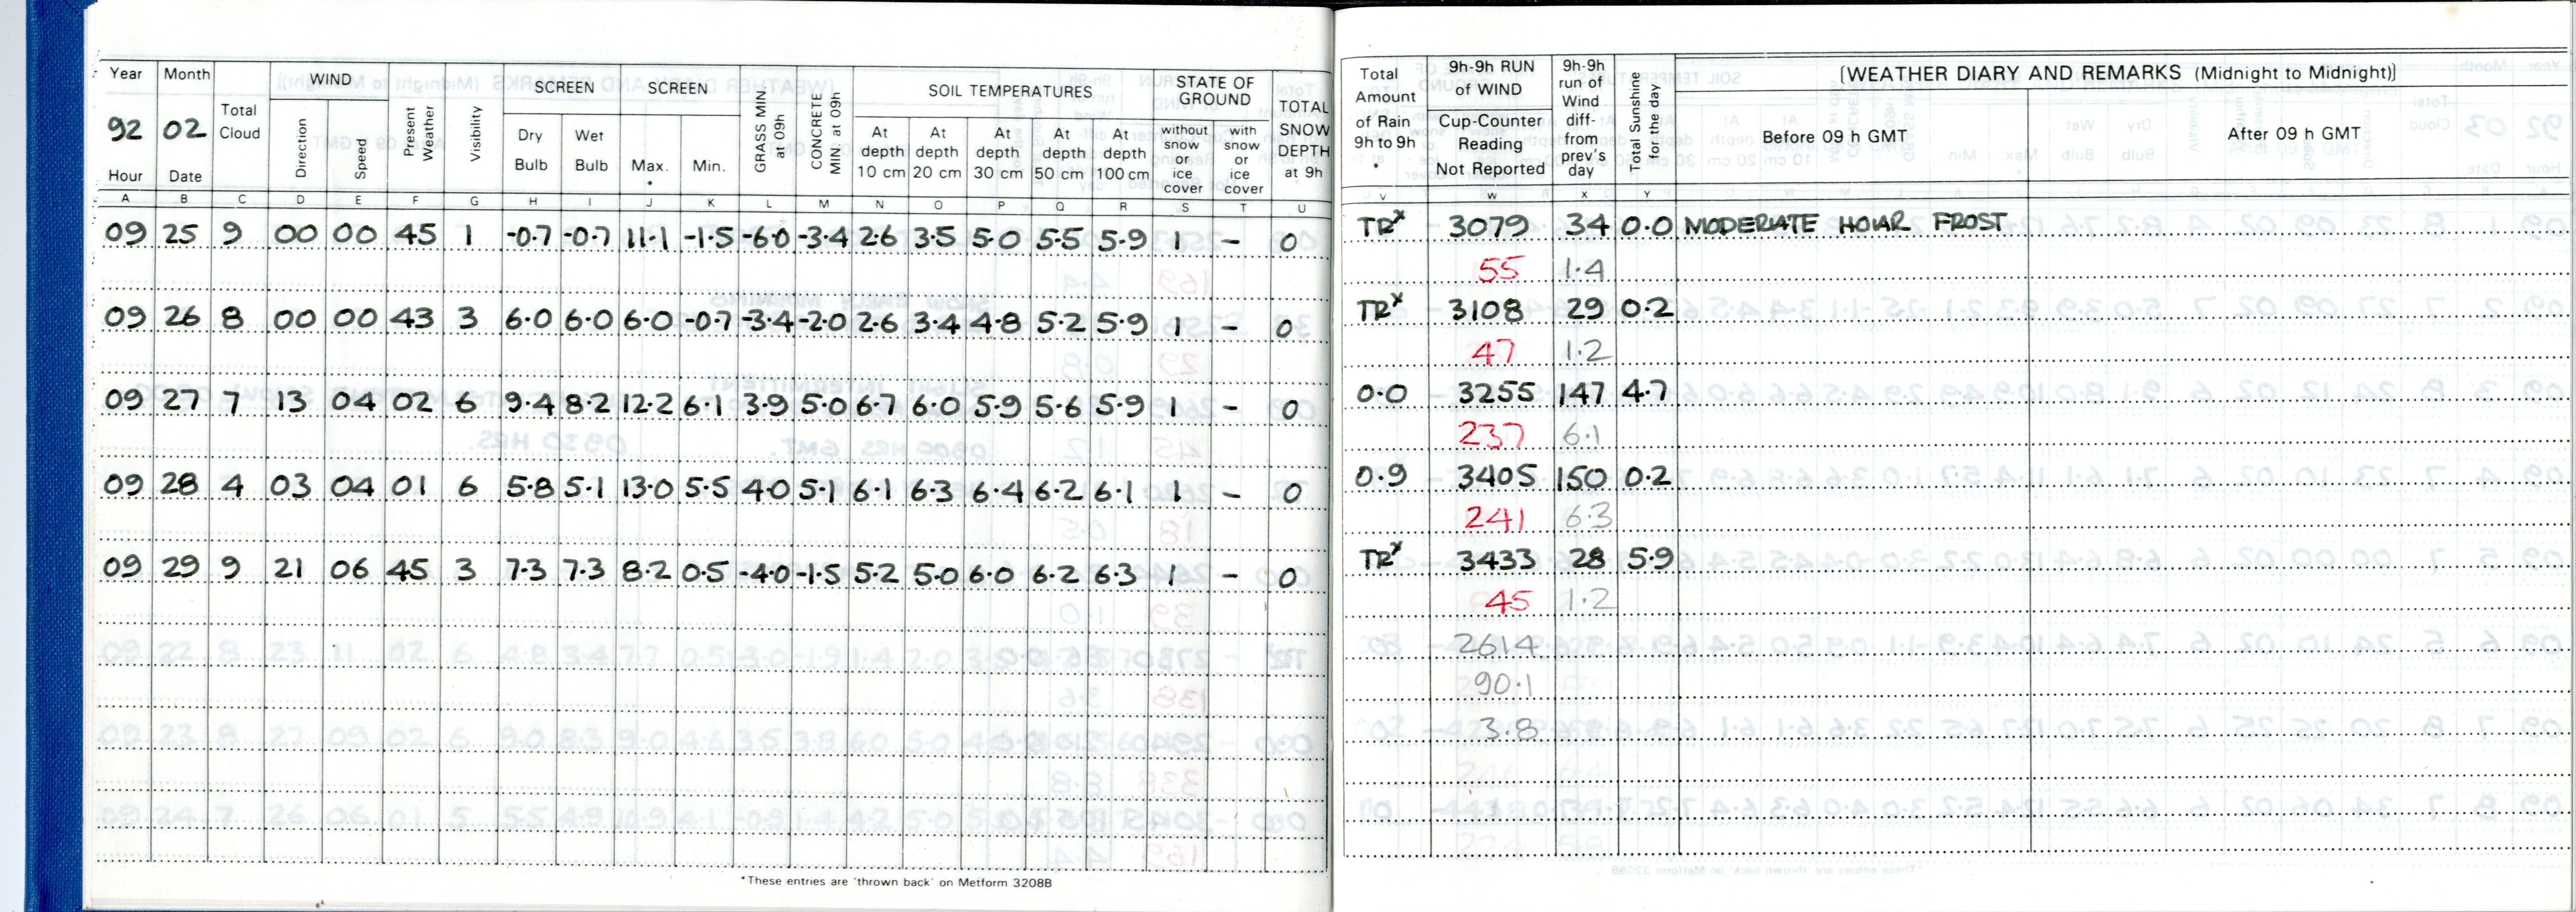 Year Month Total Cloud WIND Present Weather Visibility SCREEN SCREEN GRASS MIN at 09h CONCRETE MIN at 09h SOIL TEMPERATURES STATE OF GROUND TOTAL SNOW DEPTH at 9h Total Amount of Rain 9h to 9h * 9h-9h RUN of WIND 9h-9h run of Wind diff- from prev's day Total Sunshine for the day [WEATHER DIARY AND REMARKS (Midnight to Midnight)]
92 02 Direction Speed Dry Bulb Wet Bulb Max. * Min. At depth 10 cm At depth 20 cm At depth 30 cm At depth 50 cm At depth 100 cm without snow or ice cover with snow or ice cover Cup-Counter Reading Not Reported Before 09 h GMT After 09 h GMT
Hour Date
A B C D E F G H I J K L M N O P Q R S T U V W X Y
09 25 9 00 00 45 1 -0.7 -0.7 11.1 -1.5 -6.0 -3.4 2.6 3.5 5.0 5.5 5.9 1 - 0 TRx 3079 34 0.0 MODERATE HOAR FROST
55 1.4
09 26 8 00 00 43 3 6.0 6.0 6.0 -0.7 -3.4 -2.0 2.6 3.4 4.8 5.2 5.9 1 - 0 TRx 3108 29 0.2
47 1.2
09 27 7 13 04 02 6 9.4 8.2 12.2 6.1 3.9 5.0 6.7 6.0 5.9 5.6 5.9 1 - 0 0.0 3255 147 4.7
237 6.1
09 28 4 03 04 01 6 5.8 5.1 13.0 5.5 4.0 5.1 6.1 6.3 6.4 6.2 6.1 1 - 0 0.9 3405 150 0.2
241 6.3
09 29 9 21 06 45 3 7.3 7.3 8.2 0.5 -4.0 -1.5 5.2 5.0 6.0 6.2 6.3 1 - 0 TRx 3433 28 5.9
45 1.2
2614
90.1
3.8
*These entries are 'thrown back' on Metform 3208B